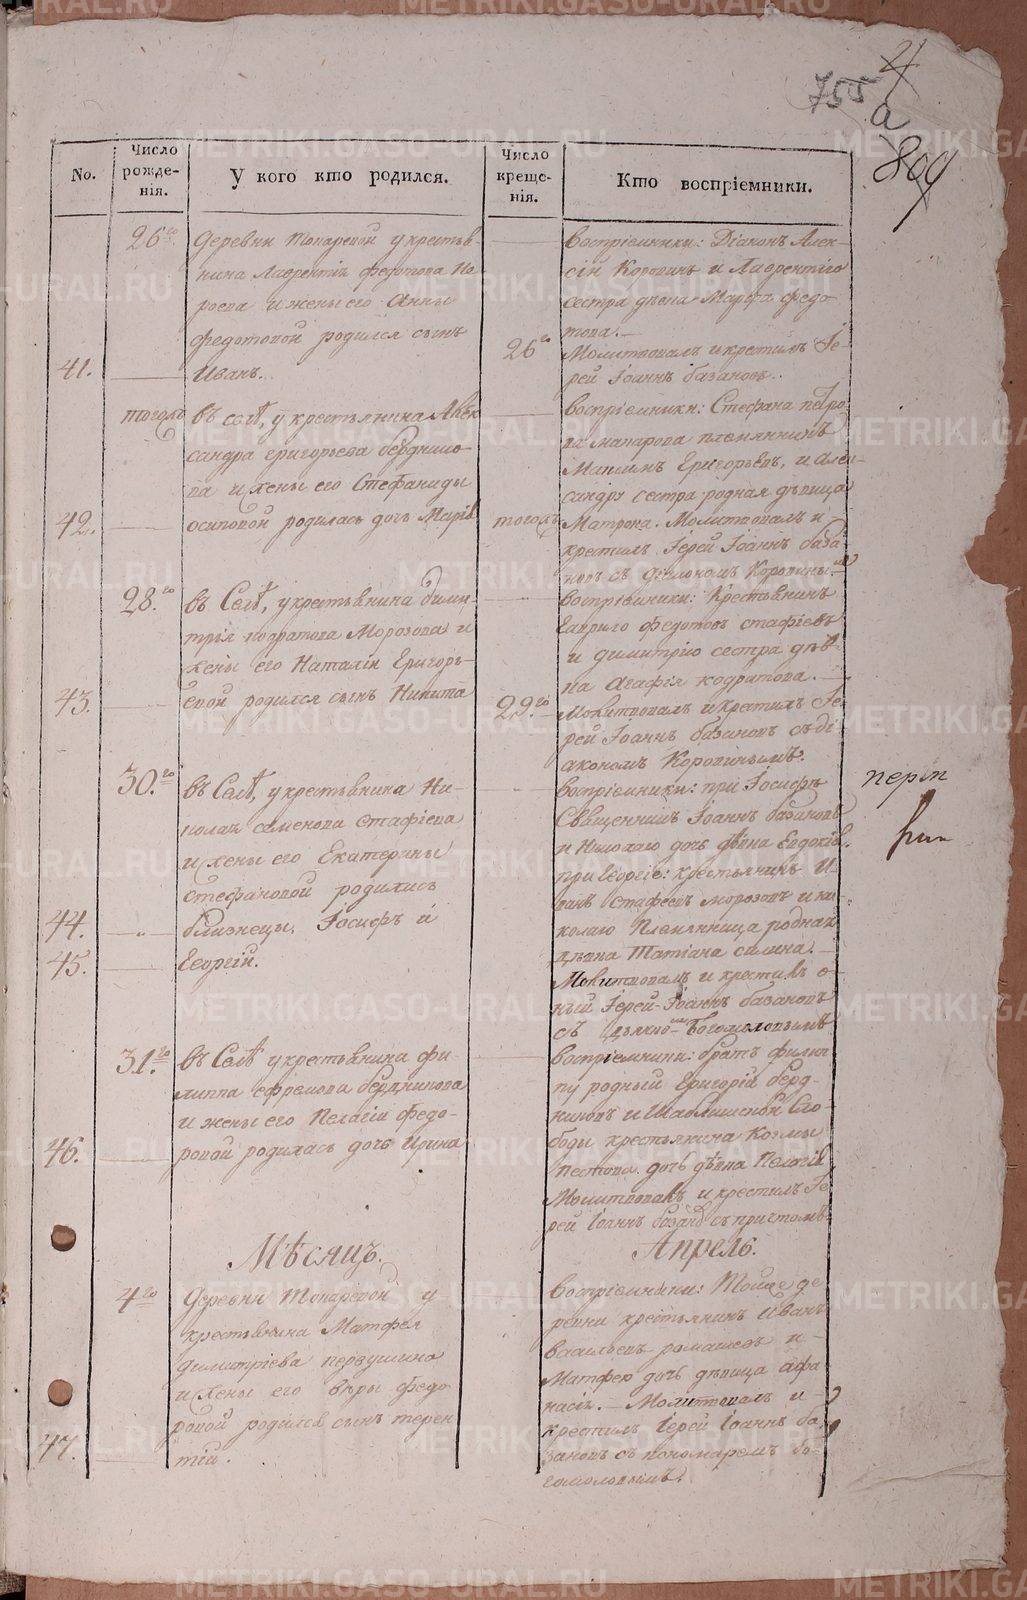 755
а
809
No.
Число рожде-нія.
У кого кто родился.
Число креще-нія.
Кто воспріемники.
26го
Деревни Токаревой у крестья-
нина Лаврентія Федотова
и жены его Анны
Федотовой родился сынъ
41.
Иванъ.
Воспріемники: Діаконъ Алек-
сій Коровинъ и Лаврентію
сестра девка Марфа Федо-
това.
26го
Молитвовалъ и крестилъ Іе-
рей Іоаннъ Базановъ.
тогожъ
въ селѣ, у крестьянина Алек
сандра Григорьева Бердник-
ва и жены его Стефаниды
42.
Осиповой родилась дочь Марія
Воспріемники: Стефана Петро-
ва Макарова племянникъ
Максимъ Григорьевъ, и Алек-
сандру сестра родная дѣвица
тогожъ
Матрона. Молитвовалъ и
крестилъ Іерей Іоаннъ База-
новъ съ діакономъ Коровины
28.го
въ Селѣ, у крестьянина Дими-
трія Кодратова Морозова и
жены его Наталіи Григорь-
43.
евой родился сынъ Никита
Воспріемники: Крестьянинъ
Гаврило Федотовъ Стафіевъ
и Димитрію сестра дѣв-
ка Агафія Кодратова.
29.го
Молитвовалъ и крестилъ Іе-
рей Іоаннъ Базановъ съ ді-
акономъ Коровинымъ.
30.го
въ Селѣ, у крестьянина Ни-
колая Семенова Стафіева
и жены его Екатерины
Стефановой родились
44.
близнецы. Іосифъ и
45.
Георгій.
Воспріемники: при Іосифѣ
Священникъ Іоаннъ Базановъ
и Николаю дочь дѣвка Евдокія.
при Георгіѣ: крестьянинъ И
ванъ Морозовъ и ни
колаю Племянница родная
дѣвка Татіана
Молитвовалъ и крестилъ о-
ный Іерей Іоаннъ Базановъ
съ Богомоловымъ
31.го
въ Селѣ у крестьянина Фи-
липпа Ефремова Бердникова
и жены его Пелагіи Федо-
46.
ровой родилась дочь Ирина
Воспріемники: братъ Филип
пу родный Григорій Берд-
никовъ и Сло-
боды крестьянина Козмы
Пестова дочь дѣвка Пелагія
Молитвовалъ и крестилъ Іе
рей Іоаннъ Базанов съ причтомъ
Мѣсяцъ.
Апрель.
4го
Деревни Токаревой у
крестьянина Матфея
Димитріева Первушина
и жены его Вѣры Федо
ровой родился сынъ Терен
47.
тій.
Воспріемники: Тойже де
ревни крестьянинъ Иванъ
Васильевъ Ромашевъ и
Матфею дочь дѣвица Афа-
насія. Молитвовалъ и
крестилъ Іерей Іоаннъ Ба-
зановъ съ пономаремъ Бо-
гомоловымъ.
METRIKI.GASO-URAL.RU